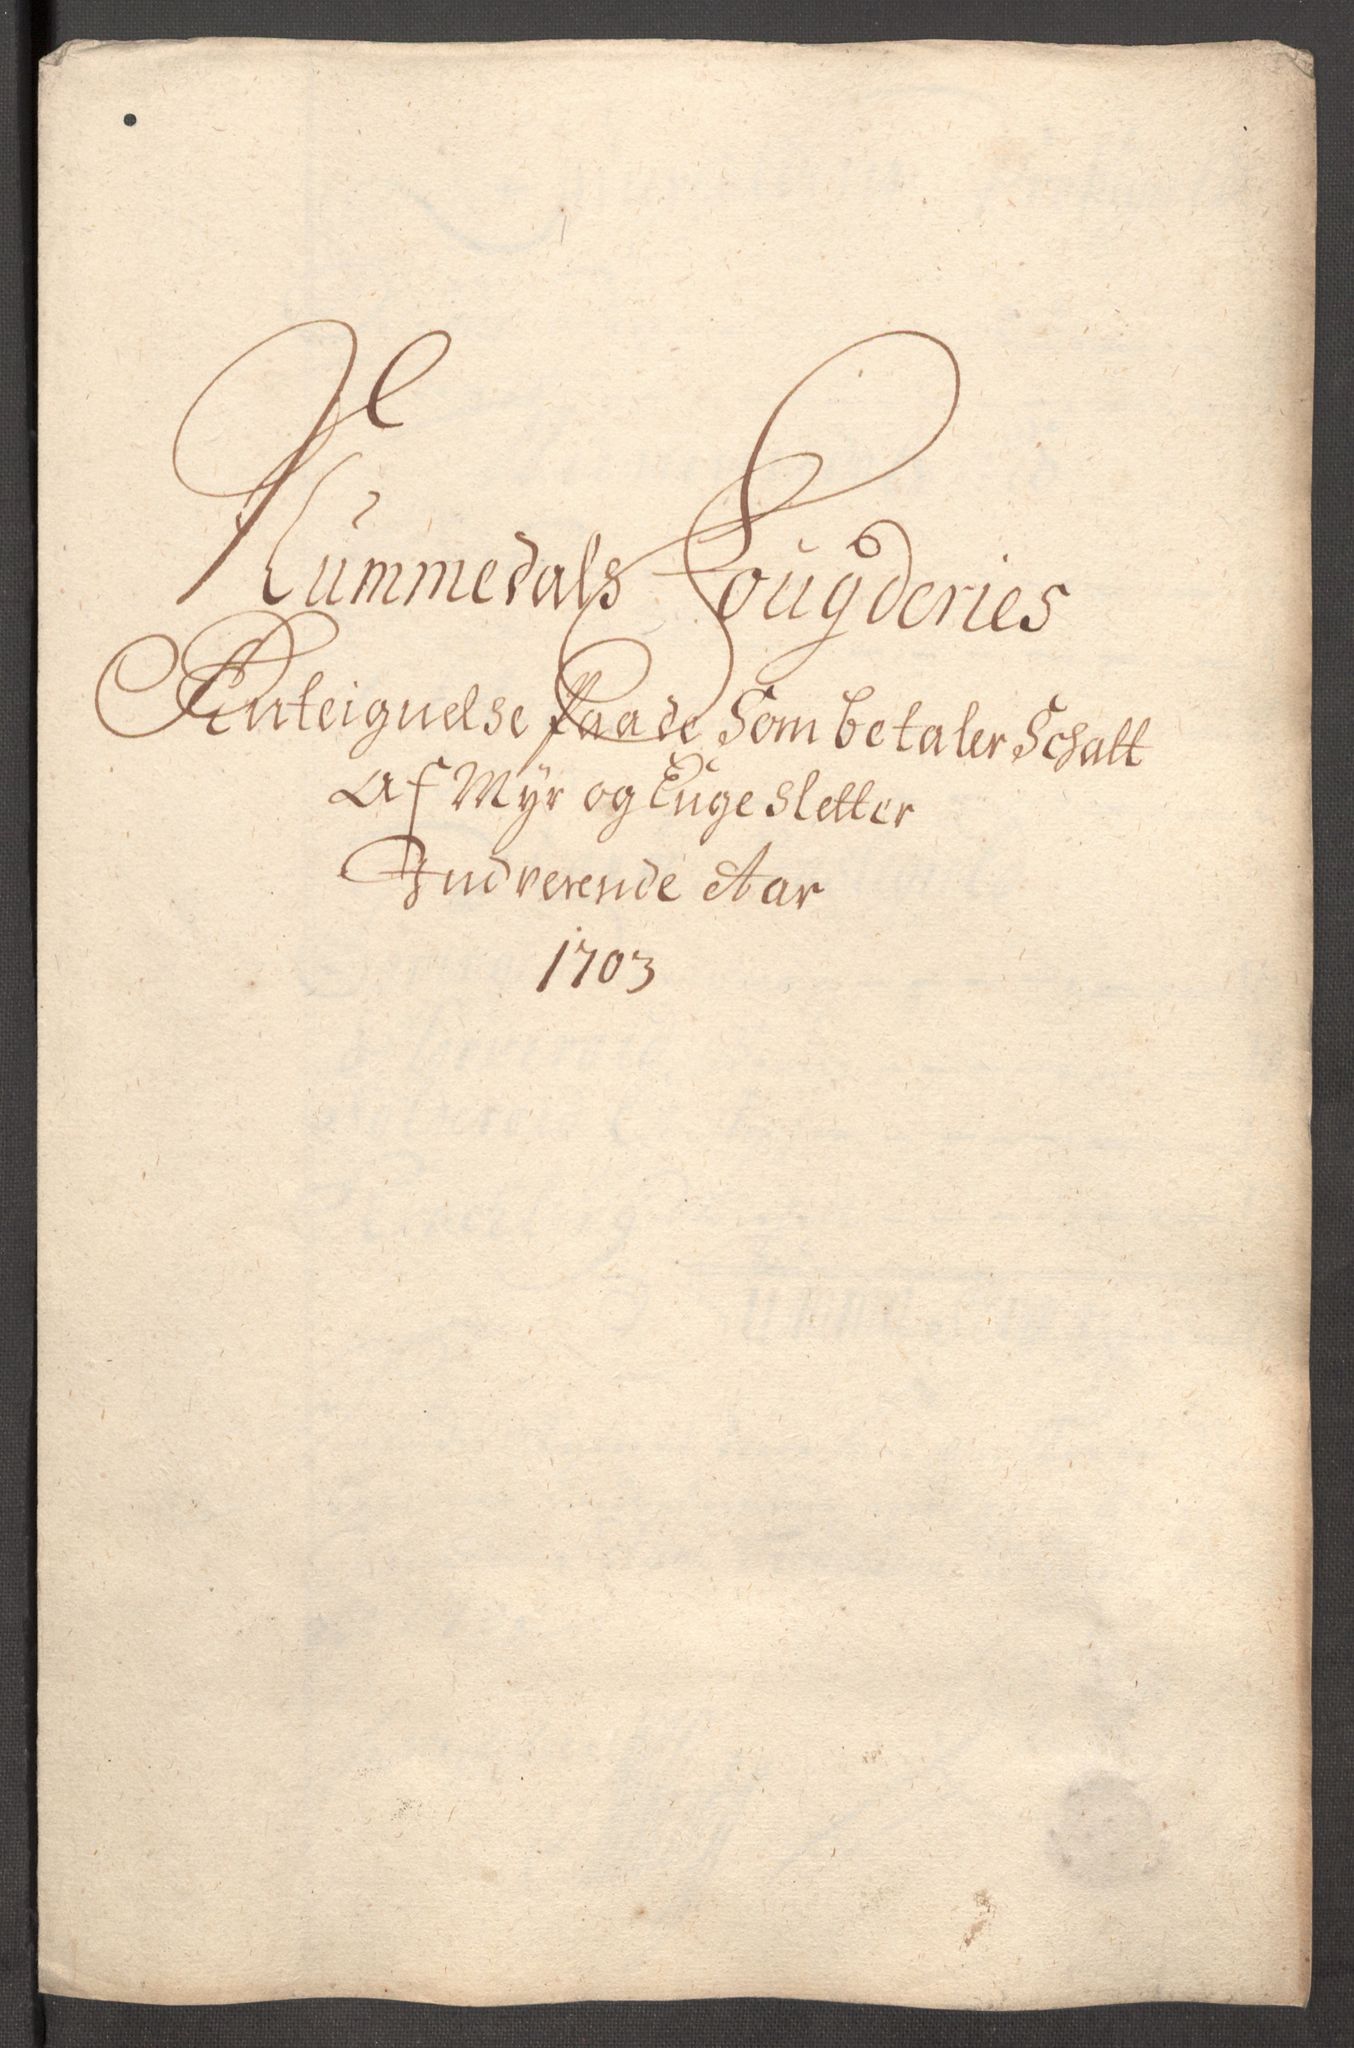 Nummedals Fougderies
Anteignelse paa de Som betaler Schatt
Af Myr og Enge Sletter
Indverende Aar
1703